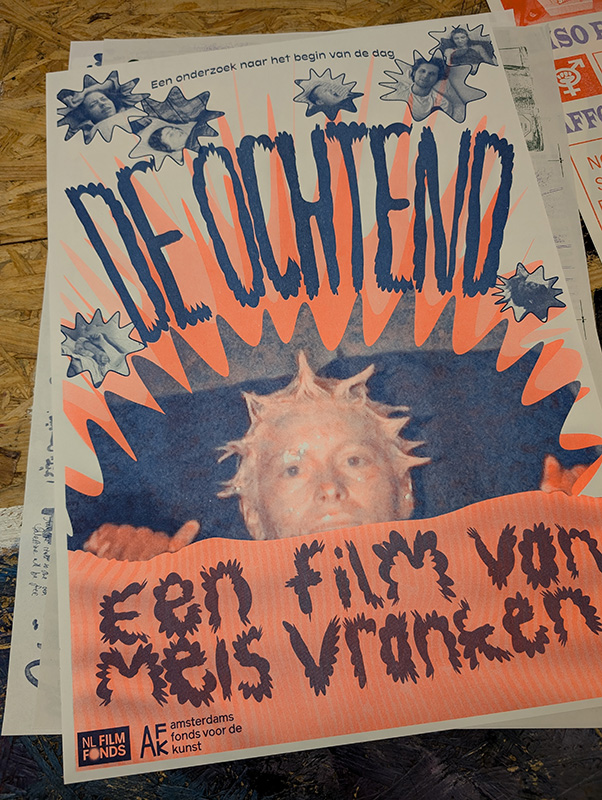 Een onderzoek naar het begin van de dag
DE OCHTEND
Een film van
meis vranken
NL FILM
FONDS
AFK
amsterdams
fonds voor de
kunst